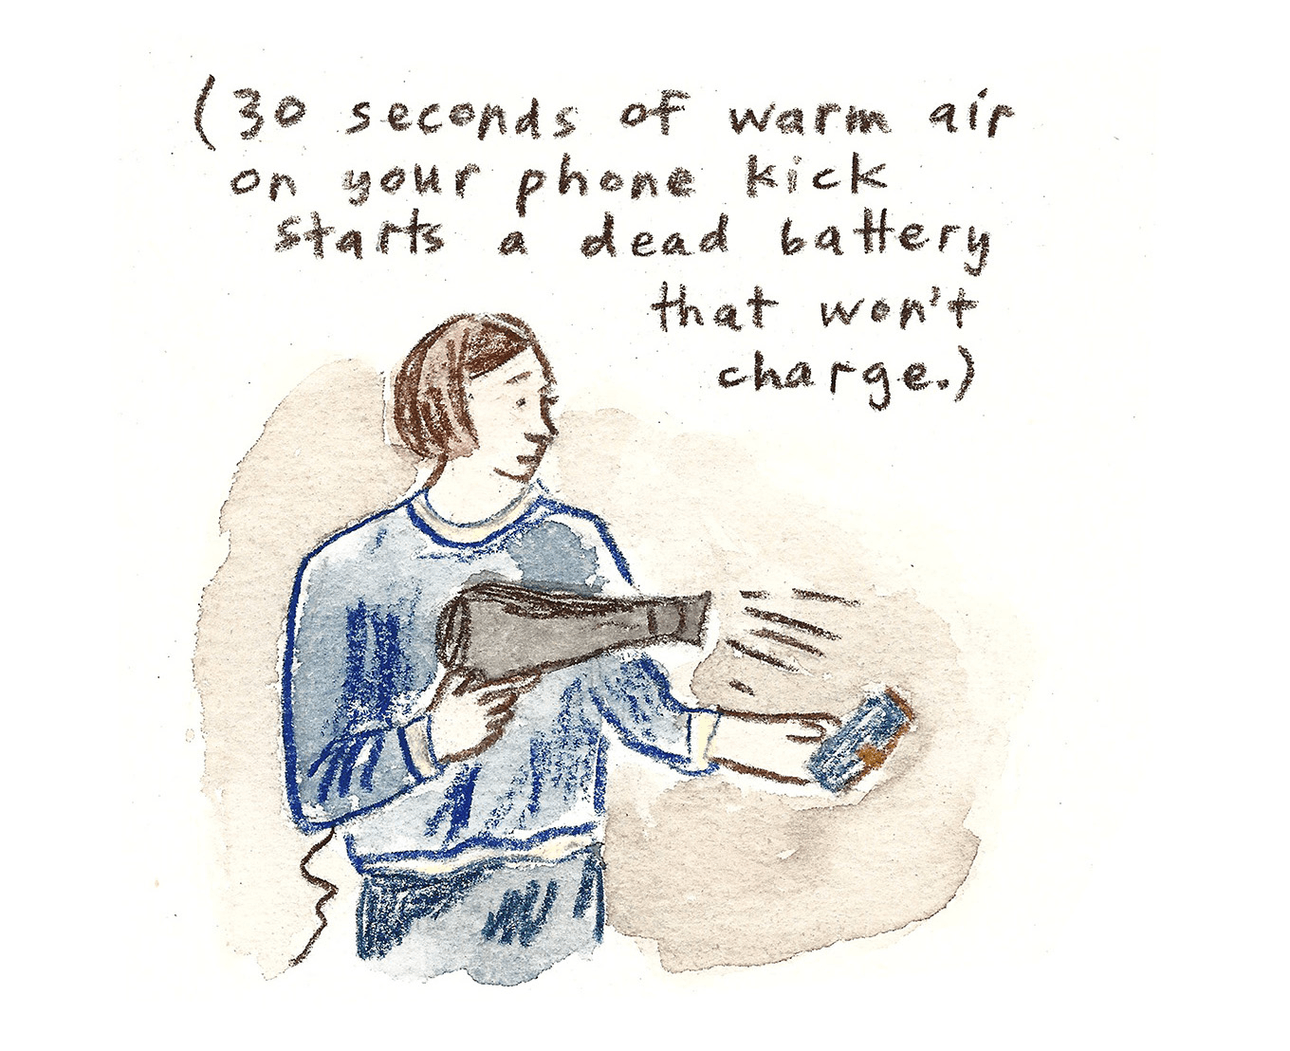 (30 seconds of warm air
on your phone kick
starts a dead battery
that won't
charge.)